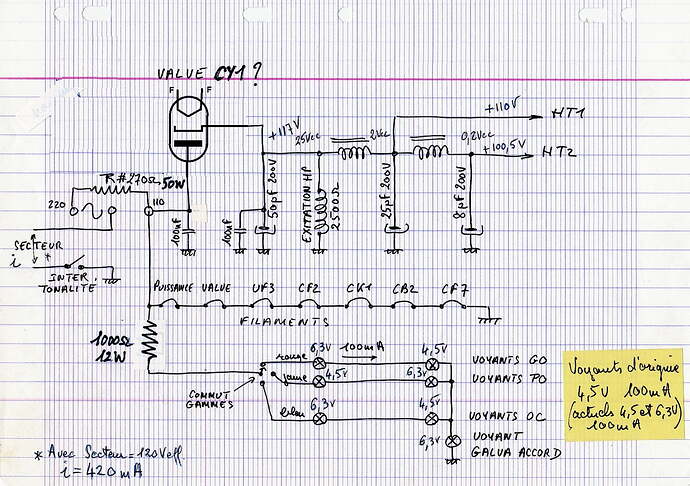 VALVE CY1 ?
F F
+117V
25Vcc
2Vcc
+110V
HT1
0,2Vcc
+100,5V
HT2
R#270Ω 50W
220
110
100nF
100nF
50µF 200V
EXITATION HP
2500Ω
25µF 200V
8µF 200V
SECTEUR
i
*
INTER.
TONALITE
PUISSANCE VALVE UF3 CF2 CK1 CB2 CF7
FILAMENTS
1000Ω
12W
COMMUT
GAMMES
rouge 6,3V 100mA 4,5V VOYANTS GO
jaune 4,5V 6,3V VOYANTS PO
blanc 6,3V 4,5V VOYANTS OC
6,3V VOYANT
GALVA ACCORD
Voyants d'origine
4,5V 100mA
(actuels 4,5 et 6,3V)
100mA
* Avec Secteur = 120Veff.
i = 420mA